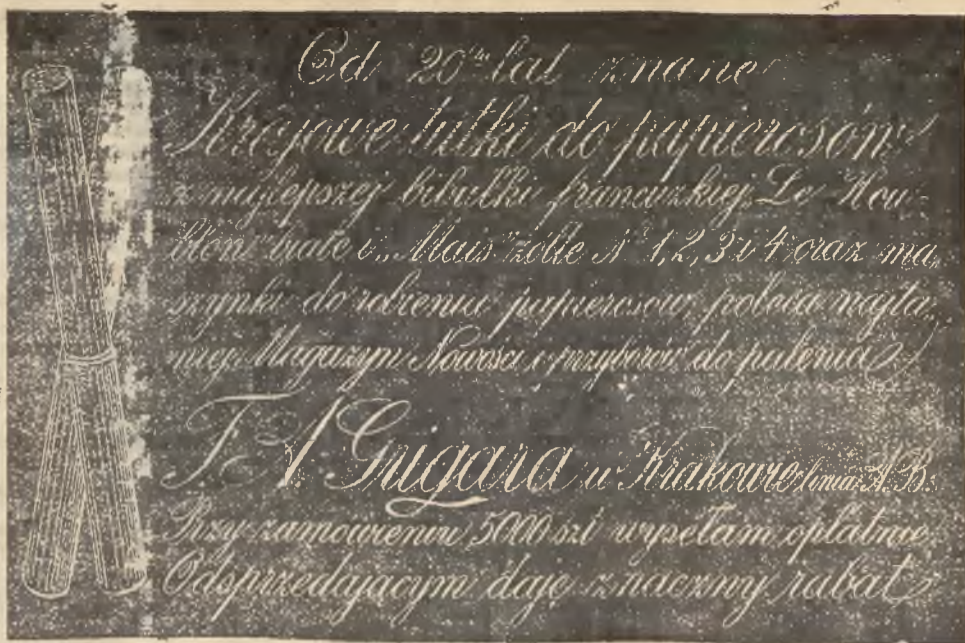 Od 20tu lat znane
Krajowe tutki do papierosów
z najlepszej bibułki francuzkiej Le Hou-
blon białe i „Mais” żółte No 1, 2, 3 i 4 oraz ma-
szynki do robienia papierosów, poleca najta-
niej Magazyn Nowości i przyborów do palenia
F. A. Grigara w Krakowie linia A.B.
Przy zamówieniu 5000 szt wysełam opłatnie
Odsprzedającym daję znaczny rabat